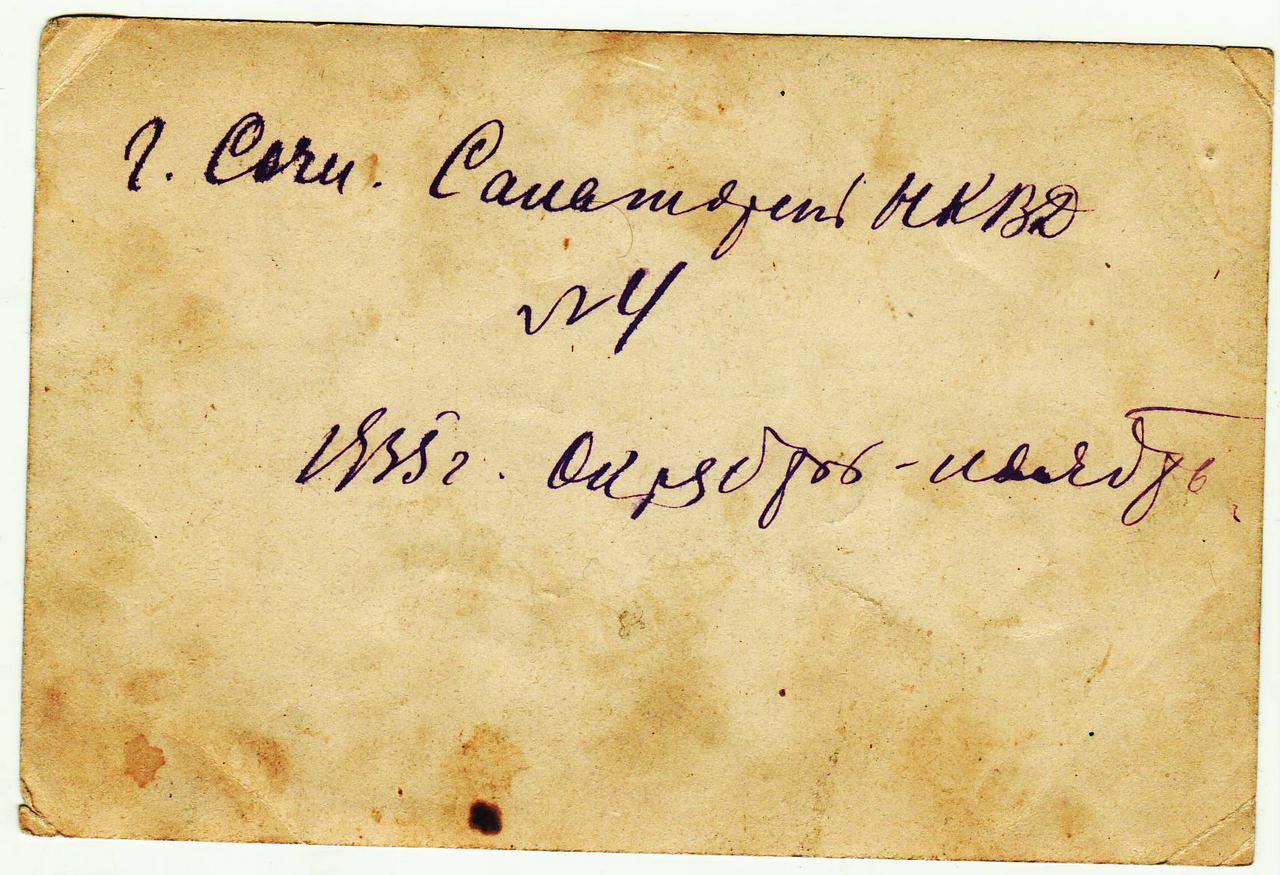 г. Сочи. Санаторий НКВД
№4
1935г. Октябрь-ноябрь